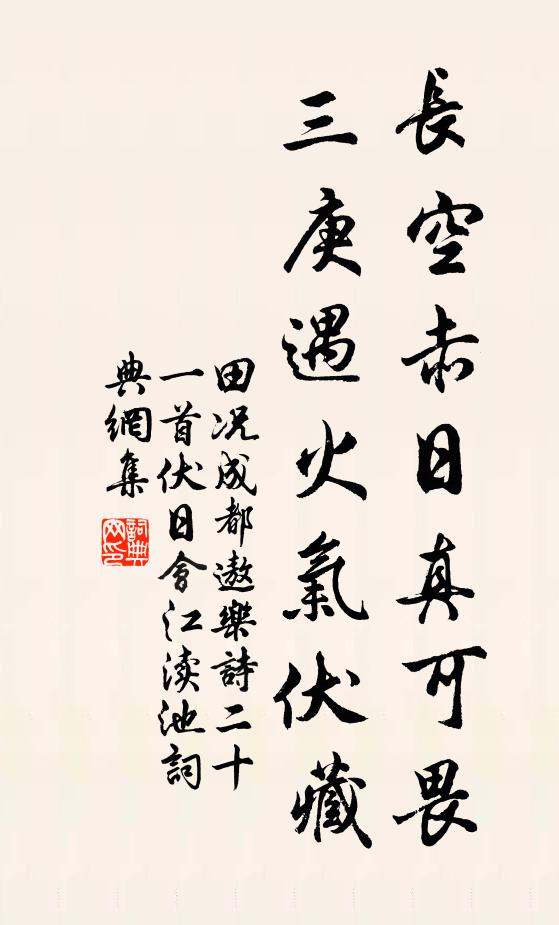 長空赤日真可畏
三庚遇火氣伏藏
田況成都遨樂詩二十
一首伏日會江渎池詞
典網集
詞典
网印